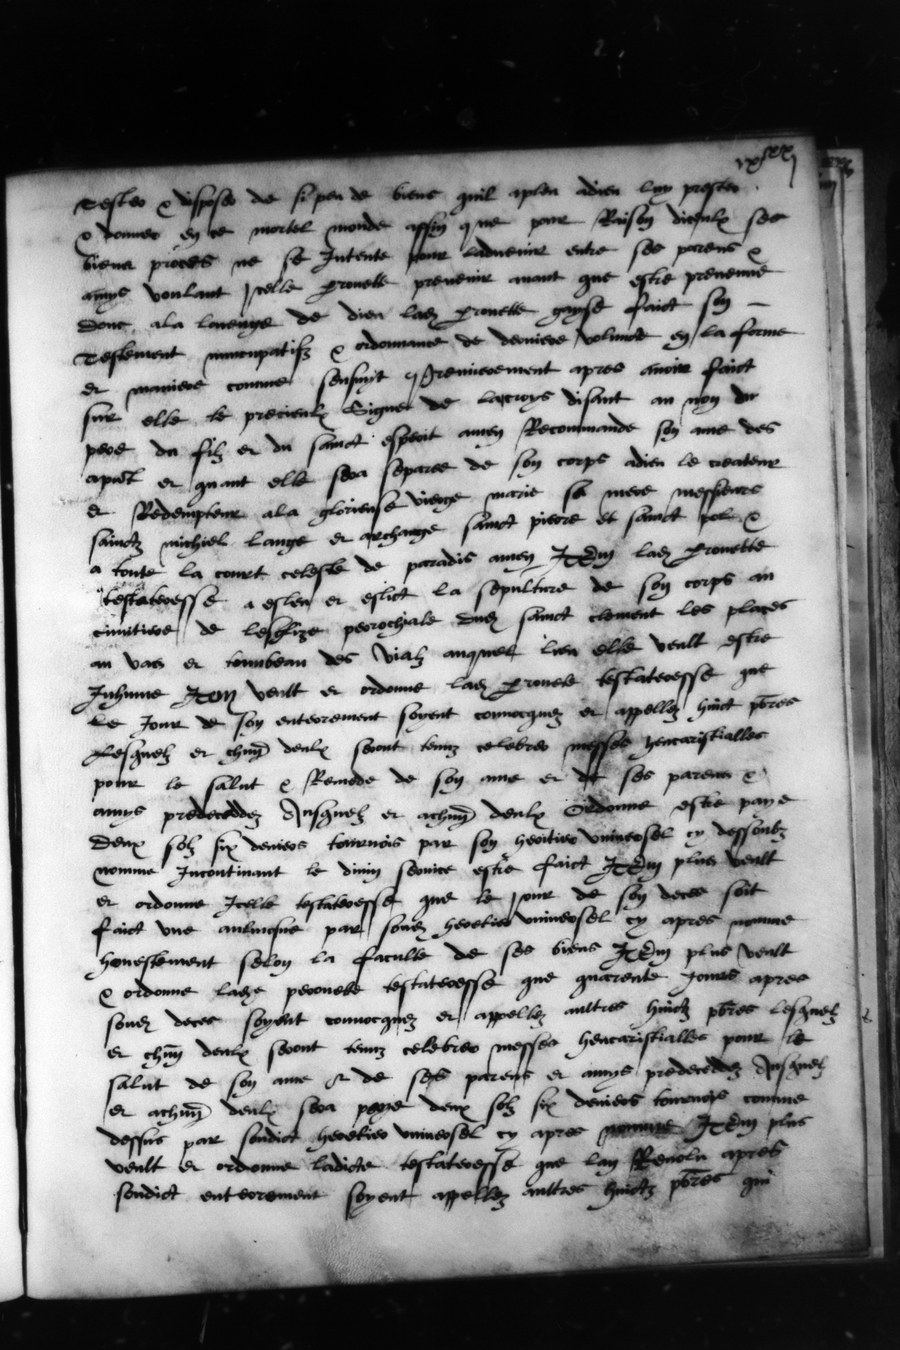 Tester & disposer de si peu de biens quil a pleu a dieu luy prester
& donner en ce mortel monde affin que par Raison diceulx ses
biens proces ne se Intente pour ladvenir entre ses parens &
amys voulant Icelle peronette prevenir avant que estre prevenue
Donc a la louenge de dieu lad peronette faict son
Testement nuncupatifz & ordonnance de derniere volunte en la forme
et maniere comme sensuyt premierement apres avoir faict
sur elle le precieulx Signe de la croys disant au nom du
pere du filz et du sainct esperit amen Recommande son ame des
a present et quant elle sera separee de son corps a dieu le createur
et Redempteur a la glorieuse vierge marie sa mere messieurs
sainctz michiel lange et archange sainct pierre et sainct pol &
a toute la court celeste de paradis amen Item lad peronette
testateresse a esleu et eslict la sepulture de son corps au
cimitiere de lesglize perochiale dud sainct clement les places
au vas et tombeau des vialz auquel lieu elle veult estre
Inhume Item veult et ordonne lad peronete testateresse que
le Jour de son enterrement soyent convocquez et appellez huict pbres
Lesquelz et chun deulx seront tenuz celebrer messes heucaristialles
pour le salut & Remede de son ame et de ses parens &
amys predecedez Ausquelz et achun deulx Ordonne estre paye
Deux solz six deniers tournois par son heritier universel cy dessoubz
nomme Incontinant le divin service estre faict Item plus veult
et ordonne Icelle testateresse que le Jour de son deces soit
faict une aulmosne par sond heretier universel cy apres nomme
honestement selon la faculte de ses biens Item plus veult
& ordonne lade peronete testateresse que quarente Jours apres
sond deces soyent convocquez et appellez aultres huictz pbres lesquelz
et chun deulx seront tenuz celebrer messes heucaristialles pour le
salut de son ame & de ses parens et amys predecedez Ausquelz
et achun deulx sera paye deux solz six deniers tournoys comme
dessus par sondict heretier universel cy apres nomme Item plus
veult et ordonne ladicte testateresse que lan Revolu apres
sondict enterrement soyent appellez aultres huictz pbres qui